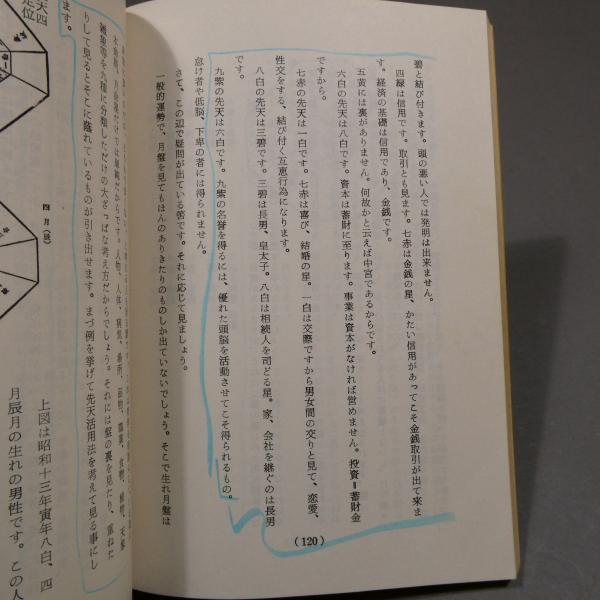 碧と結び付きます。頭の悪い人では発明は出来ません。
四緑は信用です。取引とも見ます。七赤は金銭の星、かたい信用があってこそ金銭取引が出て来ま
す。経済の基礎は信用であり、金銭です。
五黄には裏がありません。何故かと云えば中宮であるからです。
六白の先天は八白です。資本は蓄財に至ります。事業は資本がなければ営めません。投資＝蓄財金
ですから。
七赤の先天は一白です。七赤は喜び、結婚の星。一白は交際ですから男女間の交りと見て、恋愛、
性交をする、結び付く互恵行為になります。
八白の先天は三碧です。三碧は長男、皇太子。八白は相続人を司どる星。家、会社を継ぐのは長男
です。
九紫の先天は六白です。九紫の名誉を得るには、優れた頭脳を活動させてこそ得られるもの。
怠け者や低脳、下卑の者には得られません。
さて、この辺で疑問が出ている筈です。それに応じて見ましょう。
一般的運勢で、月盤を見てもほんのありきたりのものしか出ていないでしょう。そこで生れ月盤は
(120)
だけでは
だからです。人物、人体、病気、場所、品物、職業、食物、植物、天象
雑象等を九種に分類しただけの大ざっぱな考え方だからでしょう。それには盤の裏を見たり、重ねた
りして見るとそこに蔭れているものが引き出せます。まづ例を挙げて先天活用法を考えて見る事にし
ます。
天四
定位
四月
上図は昭和十三年寅年八白、四
月辰月の生れの男性です。この人